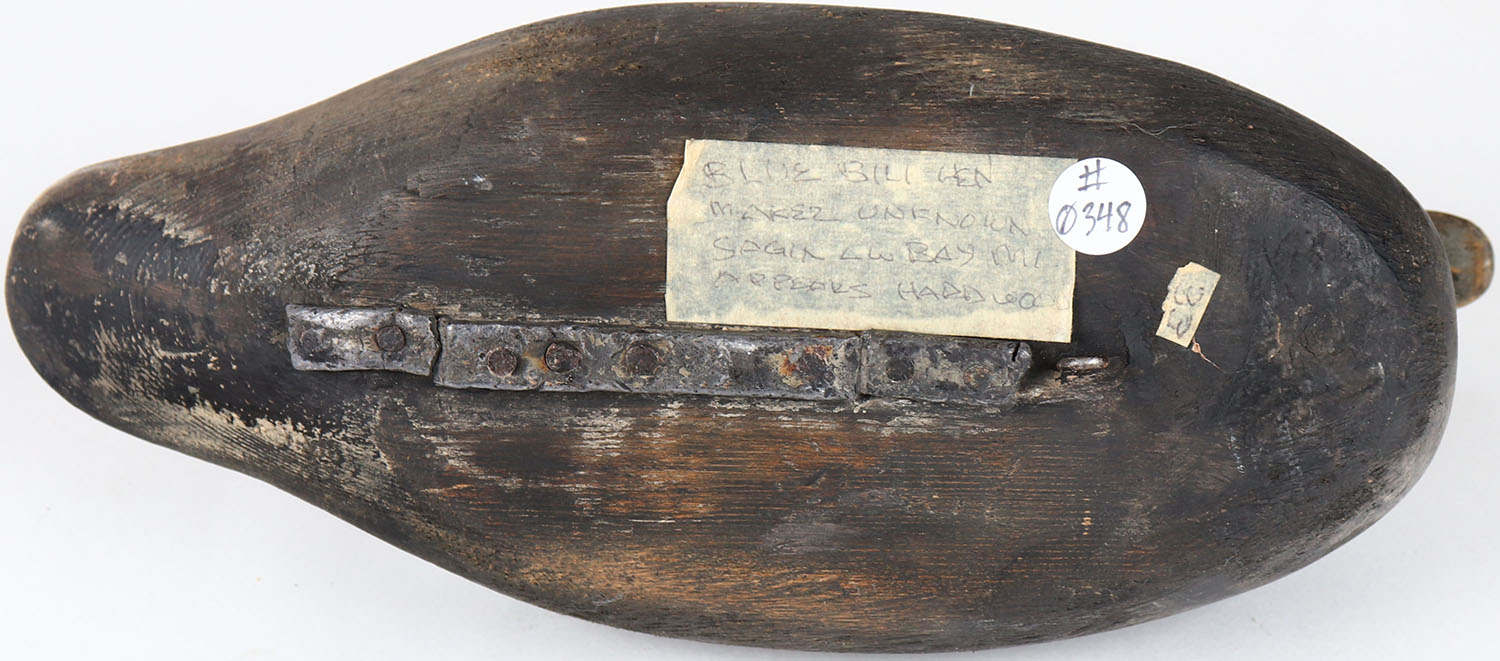 BLUE BILL HEN
MAKER UNKNOWN
SAGINAW BAY MI
APPEARS HARDWOO
#
0348